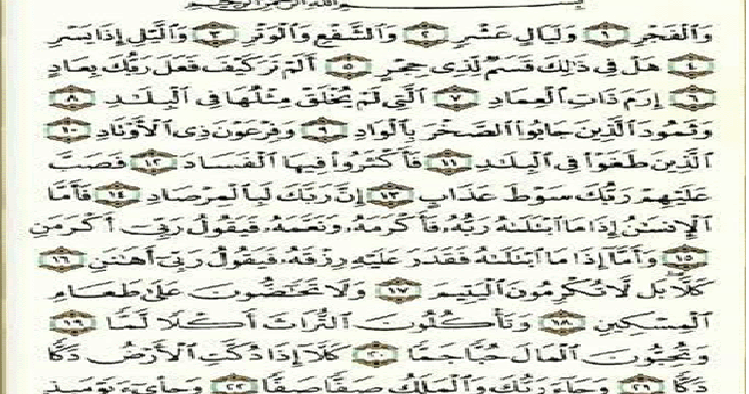 بِسْمِ ٱللَّهِ ٱلرَّحْمَٰنِ ٱلرَّحِيمِ
وَٱلْفَجْرِ ١ وَلَيَالٍ عَشْرٍ ٢ وَٱلشَّفْعِ وَٱلْوَتْرِ ٣ وَٱلَّيْلِ إِذَا يَسْرِ
٤ هَلْ فِى ذَٰلِكَ قَسَمٌ لِّذِى حِجْرٍ ٥ أَلَمْ تَرَ كَيْفَ فَعَلَ رَبُّكَ بِعَادٍ
٦ إِرَمَ ذَاتِ ٱلْعِمَادِ ٧ ٱلَّتِى لَمْ يُخْلَقْ مِثْلُهَا فِى ٱلْبِلَٰدِ ٨
وَثَمُودَ ٱلَّذِينَ جَابُوا۟ ٱلصَّخْرَ بِٱلْوَادِ ٩ وَفِرْعَوْنَ ذِى ٱلْأَوْتَادِ ١٠
ٱلَّذِينَ طَغَوْا۟ فِى ٱلْبِلَٰدِ ١١ فَأَكْثَرُوا۟ فِيهَا ٱلْفَسَادَ ١٢ فَصَبَّ
عَلَيْهِمْ رَبُّكَ سَوْطَ عَذَابٍ ١٣ إِنَّ رَبَّكَ لَبِٱلْمِرْصَادِ ١٤ فَأَمَّا
ٱلْإِنسَٰنُ إِذَا مَا ٱبْتَلَىٰهُ رَبُّهُۥ فَأَكْرَمَهُۥ وَنَعَّمَهُۥ فَيَقُولُ رَبِّىٓ أَكْرَمَنِ
١٥ وَأَمَّآ إِذَا مَا ٱبْتَلَىٰهُ فَقَدَرَ عَلَيْهِ رِزْقَهُۥ فَيَقُولُ رَبِّىٓ أَهَٰنَنِ ١٦
كَلَّا ۖ بَل لَّا تُكْرِمُونَ ٱلْيَتِيمَ ١٧ وَلَا تَحَٰٓضُّونَ عَلَىٰ طَعَامِ
ٱلْمِسْكِينِ ١٨ وَتَأْكُلُونَ ٱلتُّرَاثَ أَكْلًا لَّمًّا ١٩
وَتُحِبُّونَ ٱلْمَالَ حُبًّا جَمًّا ٢٠ كَلَّآ إِذَا دُكَّتِ ٱلْأَرْضُ دَكًّا
دَكًّا ٢١ وَجَآءَ رَبُّكَ وَٱلْمَلَكُ صَفًّا صَفًّا ٢٢ وَجِا۟ىٓءَ يَوْمَئِذٍ